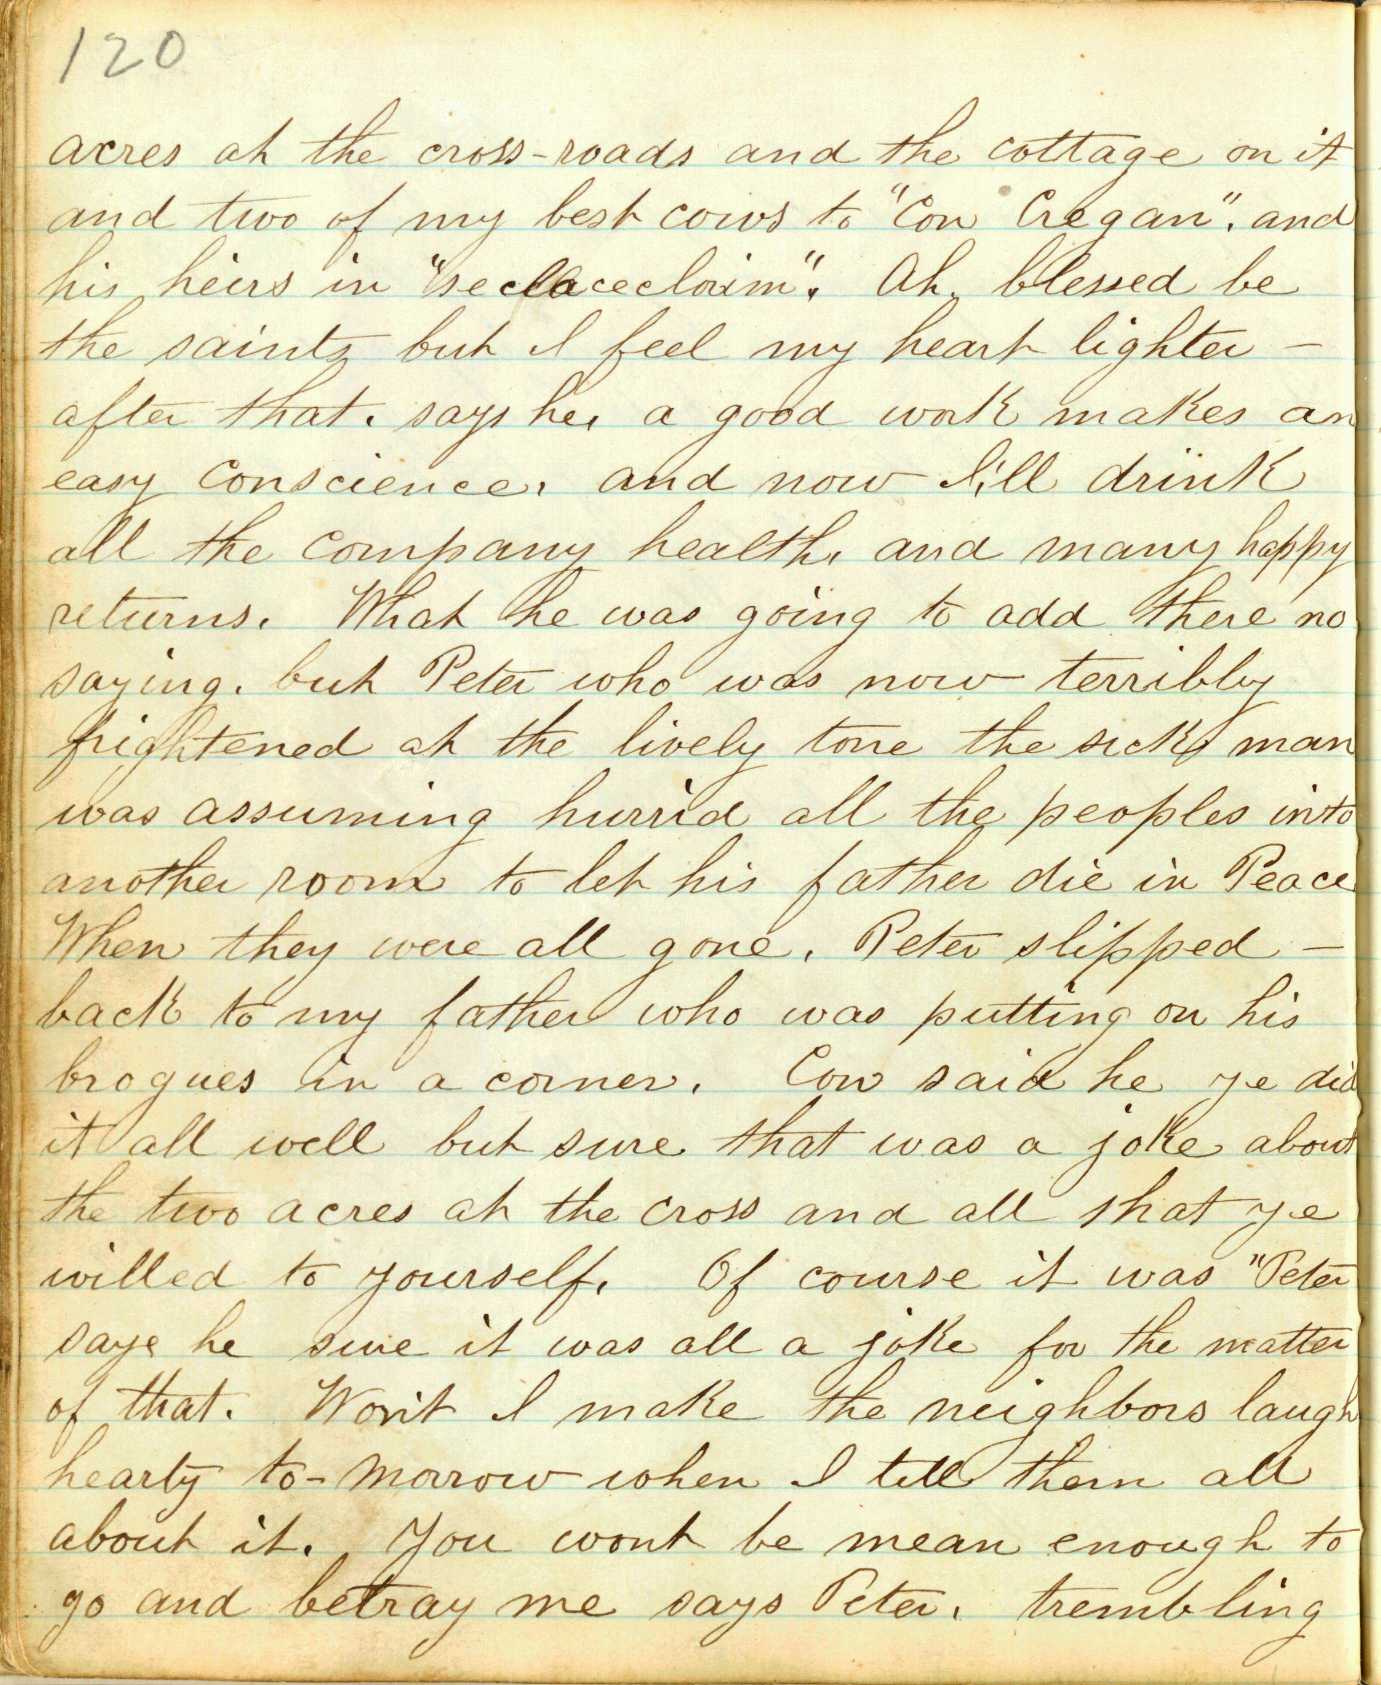 120
acres at the cross-roads and the cottage on it
and two of my best cows to "Con Cregan". and
his heirs in "seclacecloium". Ah, blessed be
the saints but I feel my heart lighter –
after that. says he, a good work makes an
easy conscience. and now I'll drink
all the company health, and many happy
returns. What he was going to add there no
saying. but Peter who was now terribly
frightened at the lively tone the sick man
was assuming hurrid all the peoples into
another room to let his father die in Peace
When they were all gone. Peter slipped –
back to my father who was putting on his
brogues in a corner. Con said he ye did
it all well but sure that was a joke about
the two acres at the cross and all that ye
willed to yourself. Of course it was "Peter
says he sure it was all a joke for the matter
of that. Won't I make the neighbors laugh
hearty to-morrow when I tell them all
about it. You wont be mean enough to
go and betray me says Peter. trembling